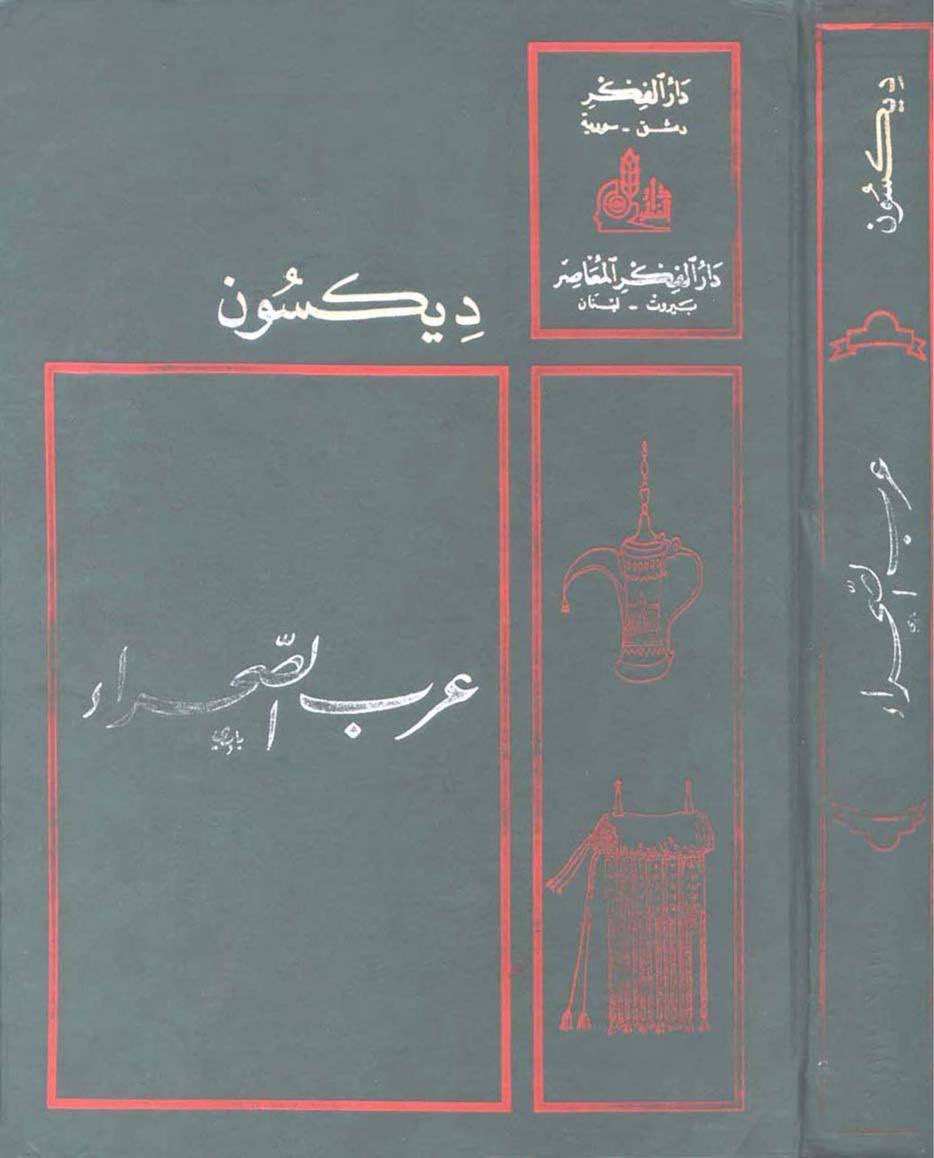 دَارُ الفِكْرِ
دمشق - سورية
دَارُ الفِكْرِ المُعَاصِر
بَيروت - لبنان
دِيكسُون
عرب الصّحراء
دِيكسُون
عرب الصّحراء